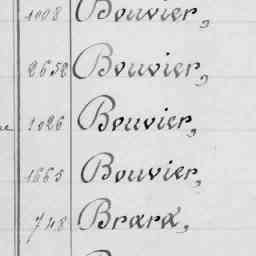 1008 Bouvier,
2652 Bouvier,
1026 Bouvier,
1665 Bouvier,
748 Brard,